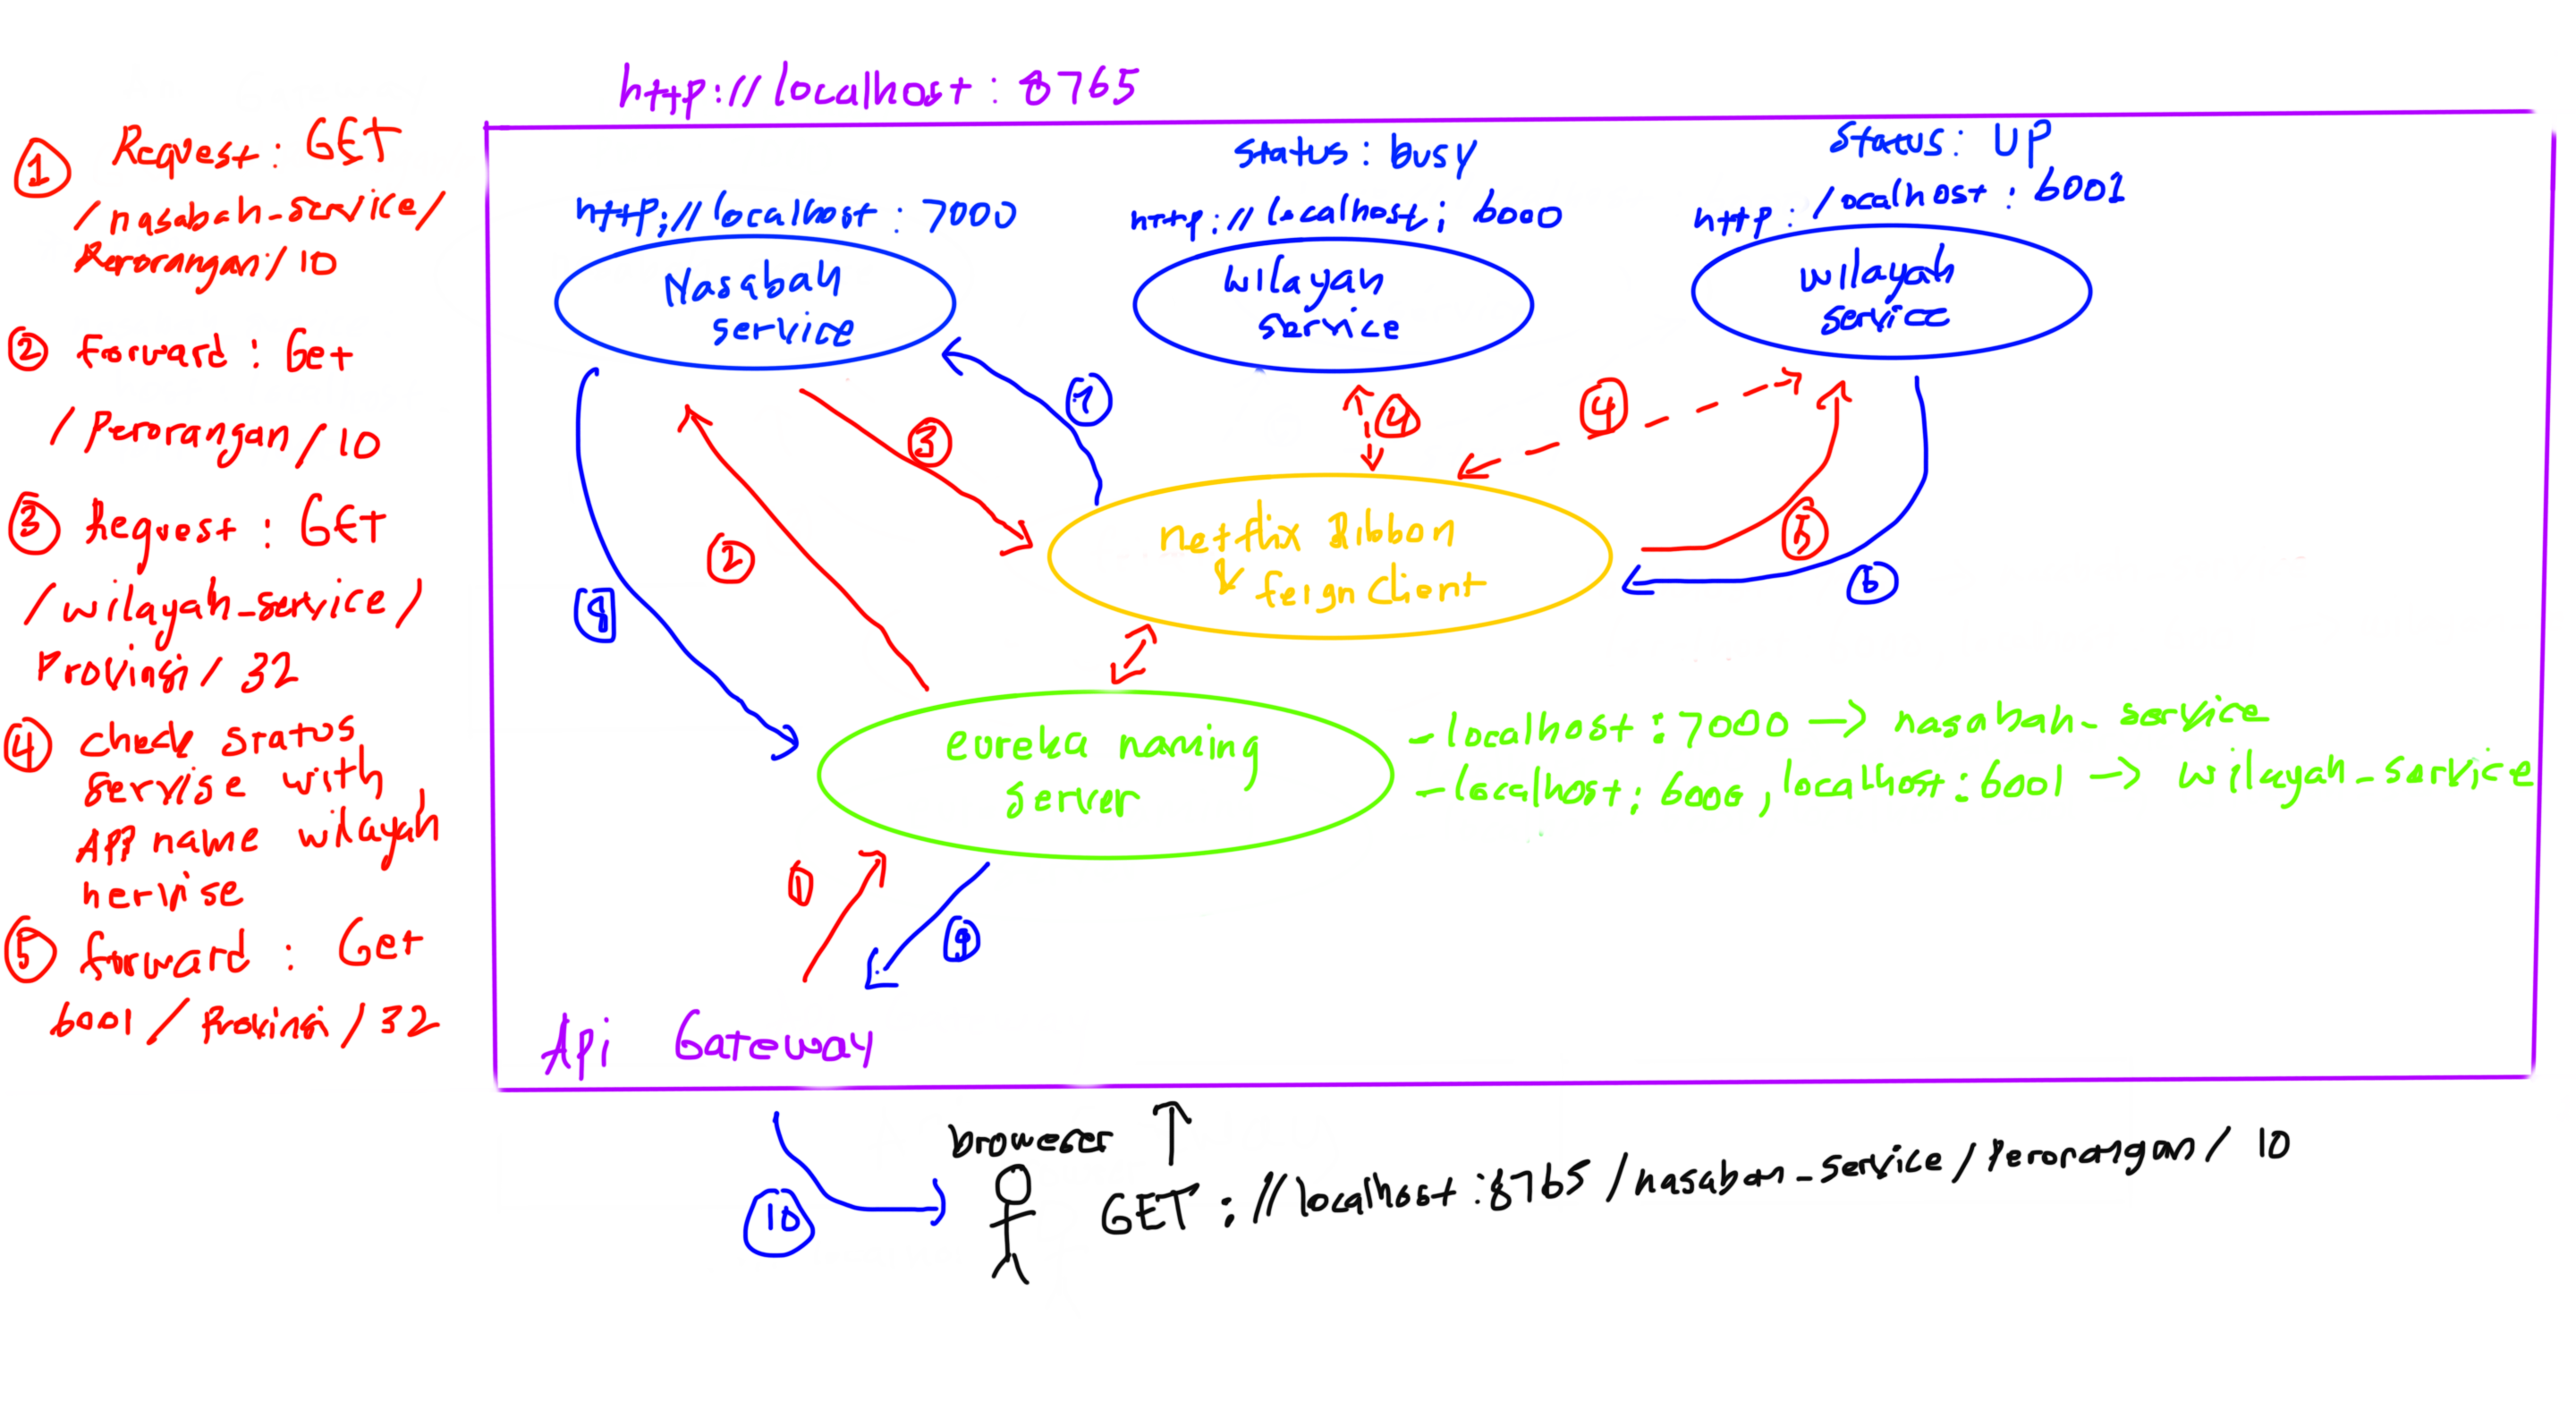 http://localhost: 8765
① Request: GET
/nasabah-service/
Perorangan/10
② forward: Get
/Perorangan/10
③ Request: GET
/wilayah-service/
Provinsi/32
④ check status
servise with
APP name wilayah
hervise
⑤ forward: Get
6001/Provinsi/32
http;//localhost: 7000
Nasabah
service
Status: busy
http://localhost; 6000
wilayah
service
Status: UP
http:/ocalhost: 6001
wilayah
service
⑦
③
④
④
②
⑧
⑤
⑥
netflix Ribbon
& feign Client
eureka naming
server
-localhost: 7000 -> nasabah-service
-localhost: 6000, localhost: 6001 -> wilayah-service
①
⑨
Api Gateway
⑩
broweser
GET: //localhost:8765/nasabah-service/Perorangan/10